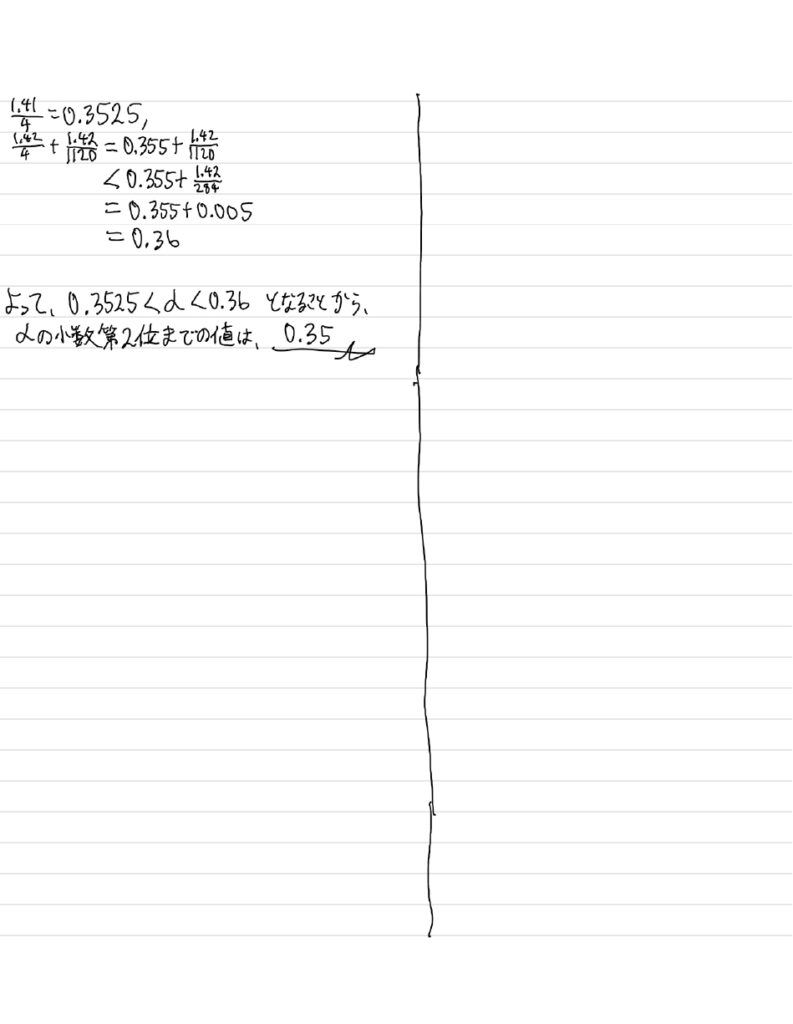 1.41/4 = 0.3525,
1.42/4 + 1.42/1120 = 0.355 + 1.42/1120
< 0.355 + 1.42/284
= 0.355 + 0.005
= 0.36
よって、0.3525 < α < 0.36 となることから、
αの小数第2位までの値は、0.35